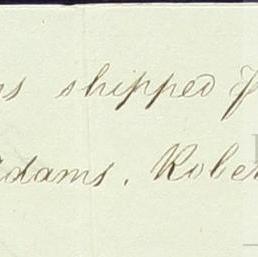 shipped
Adams, Rober